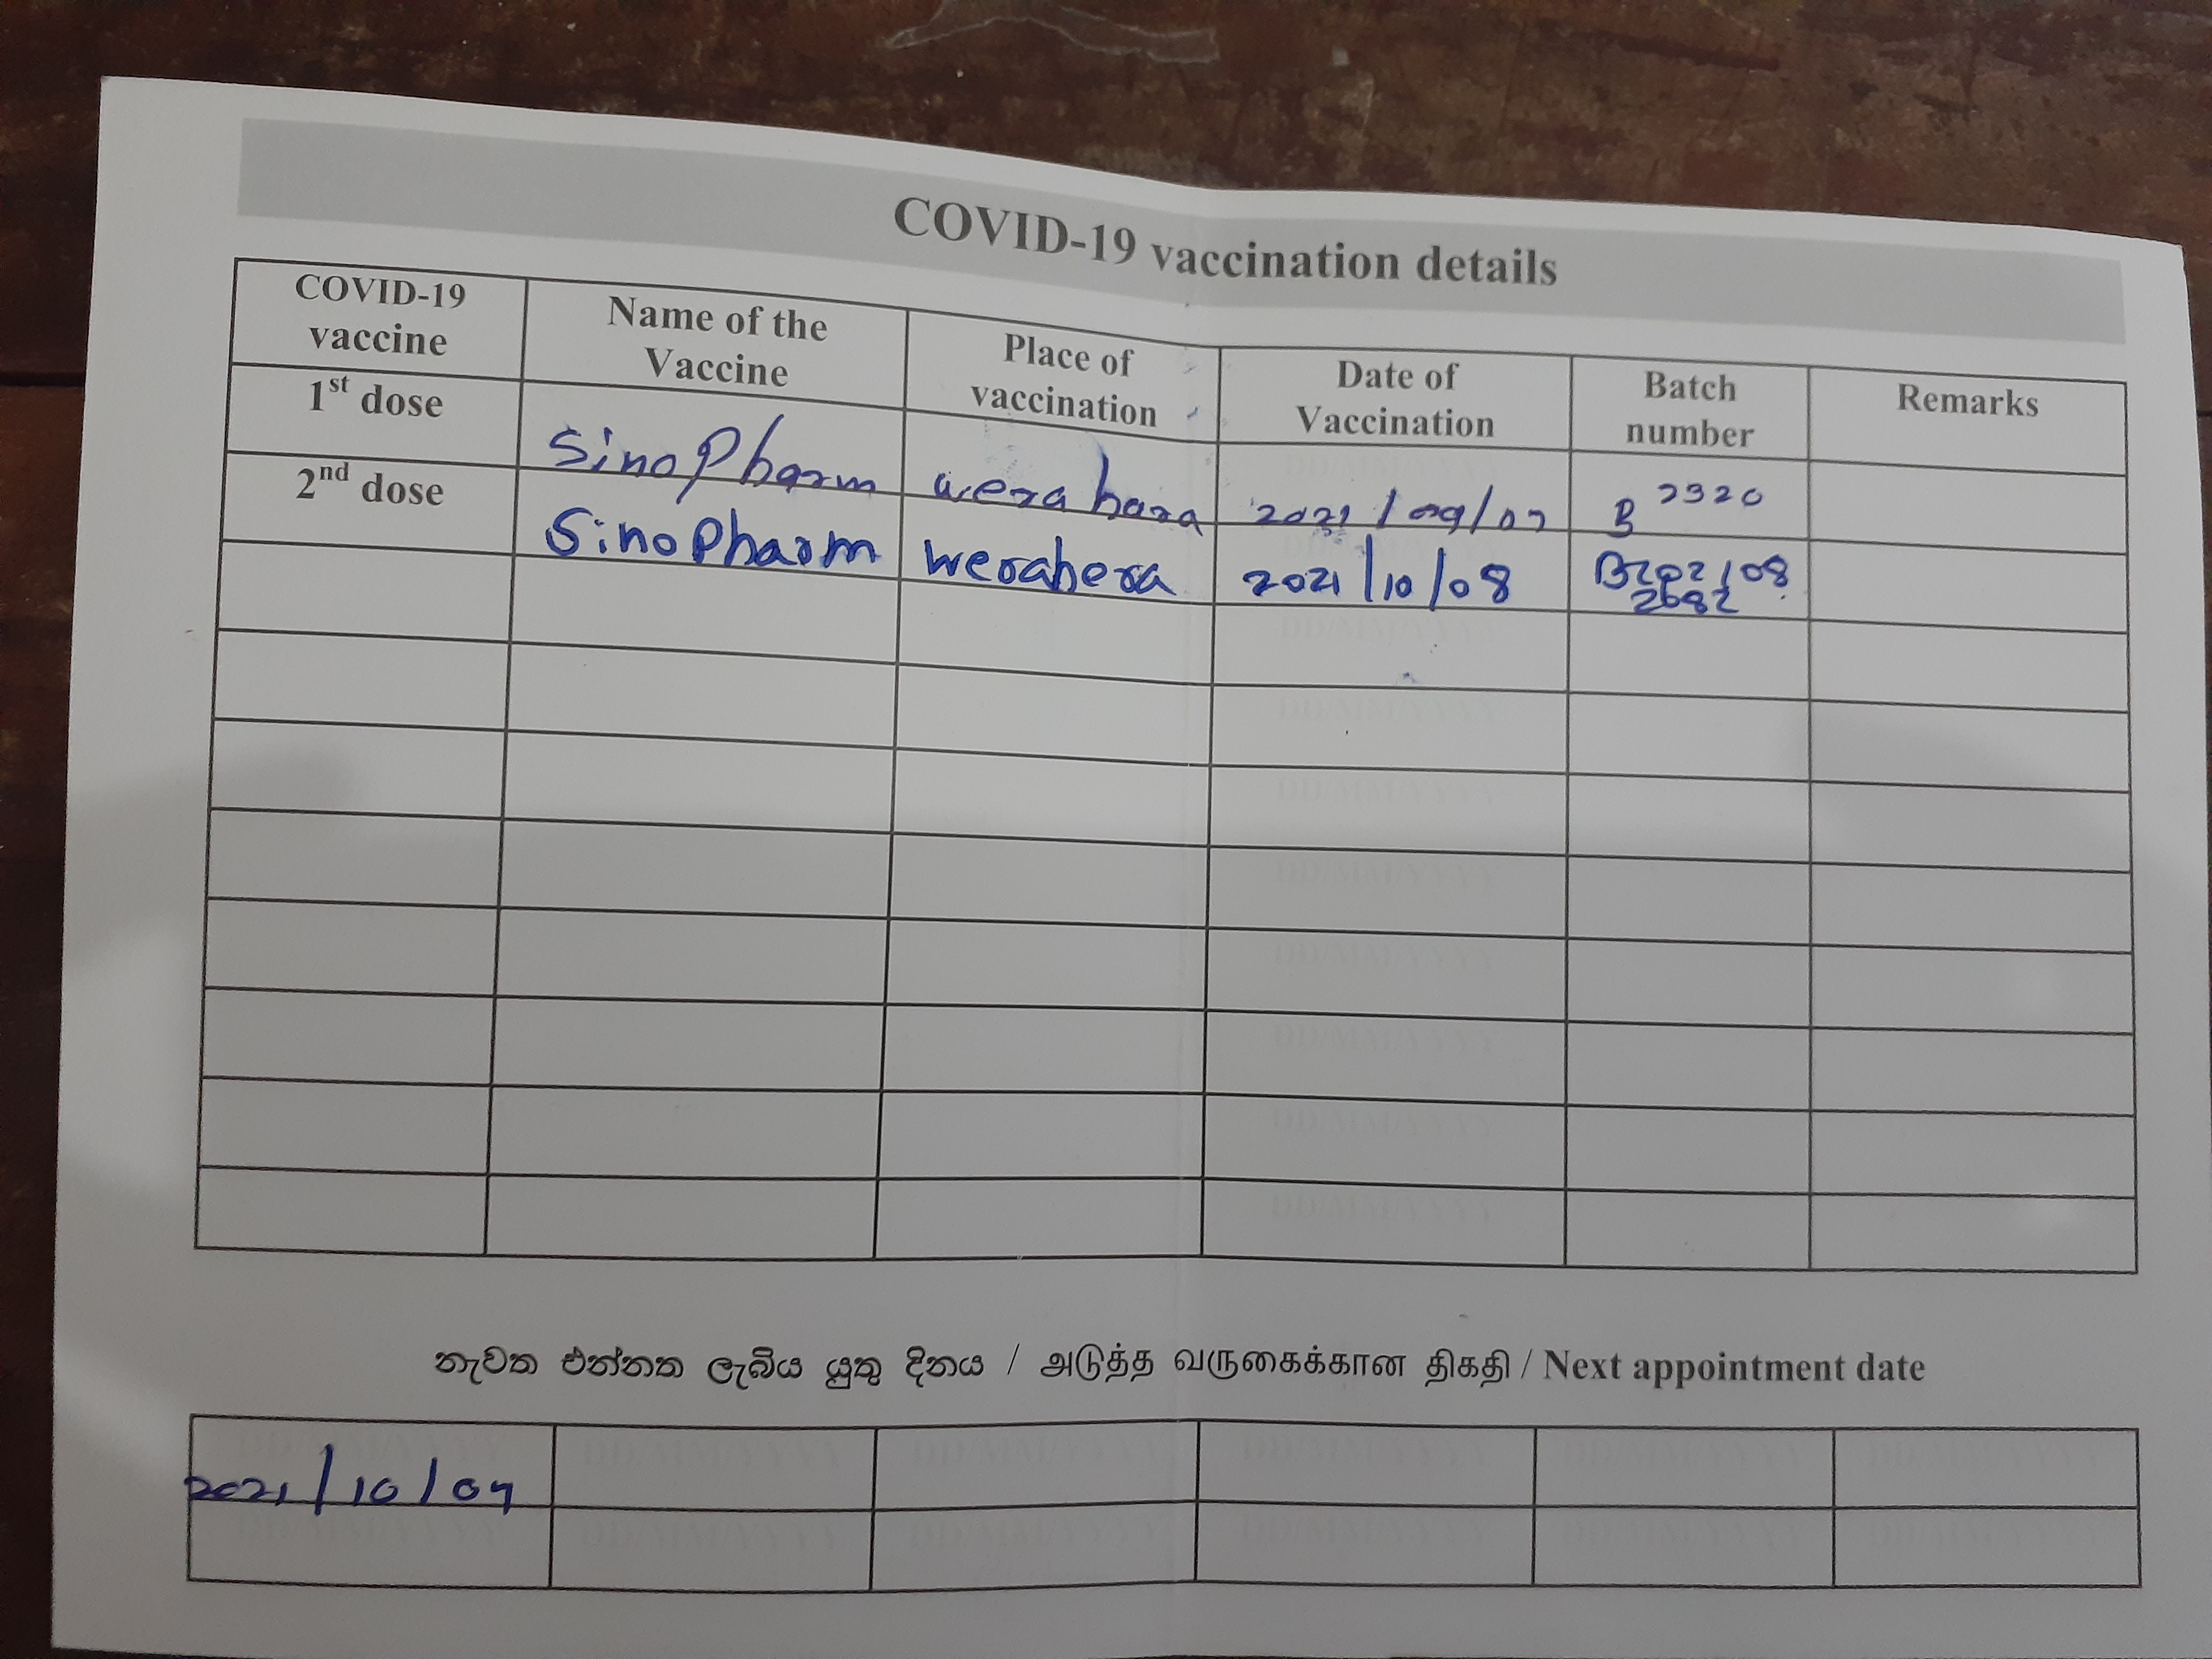 COVID-19 vaccination details
COVID-19 vaccine Name of the Vaccine Place of vaccination Date of Vaccination Batch number Remarks
1st dose SinoPharm werahara 2021/09/07 B
2nd dose SinoPharm werahera 2021/10/08
නැවත එන්නත ලැබිය යුතු දිනය / அடுத்த வருகைக்கான திகதி / Next appointment date
2021/10/07